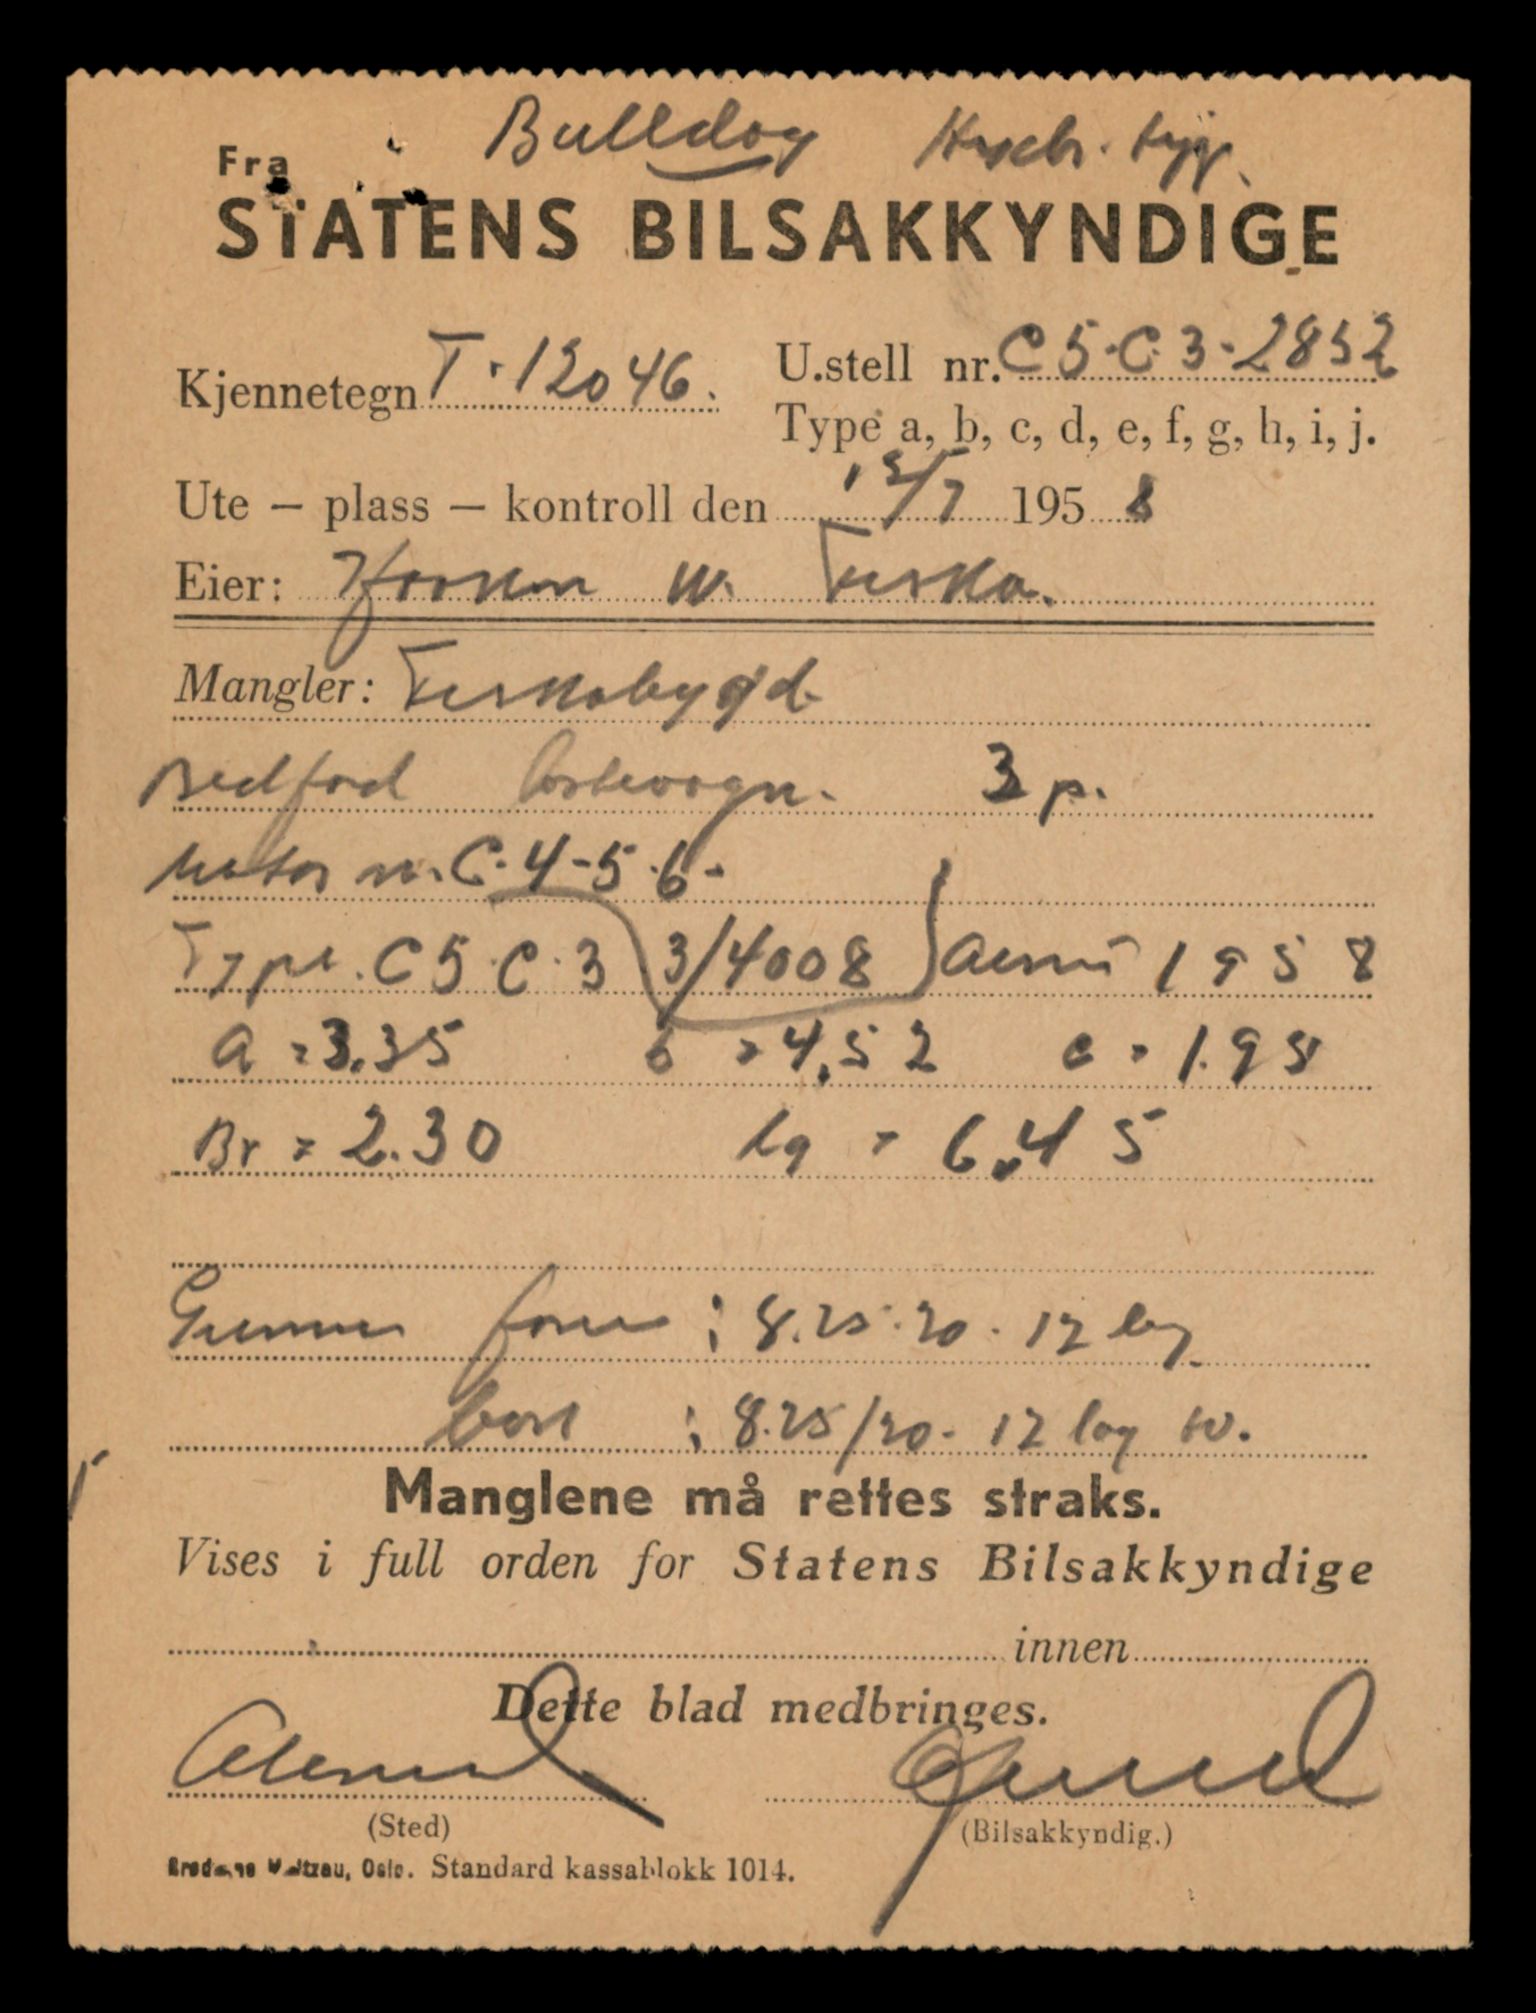 Bulldog
Fra
STATENS BILSAKKYNDIGE
Kjennetegn T-12046.
U.stell nr. C5.C.3-2852
Type a, b, c, d, e, f, g, h, i, j.
Ute – plass – kontroll den 12/7 1958
Eier: W. Ferska.
Mangler:
Bedford lastevogn. 3 p.
Motor nr. C.4-5.6-
Type. C5.C.3 3/4008 1958
a = 3.35 b = 4,52 c = 1.95
Br = 2.30 Lg = 6,45
Gummi foran : 8.25.20. 12 lag
bak : 8.25/20. 12 lag
Manglene må rettes straks.
Vises i full orden for Statens Bilsakkyndige
innen
Dette blad medbringes.
(Sted) (Bilsakkyndig.)
Oslo. Standard kassablokk 1014.